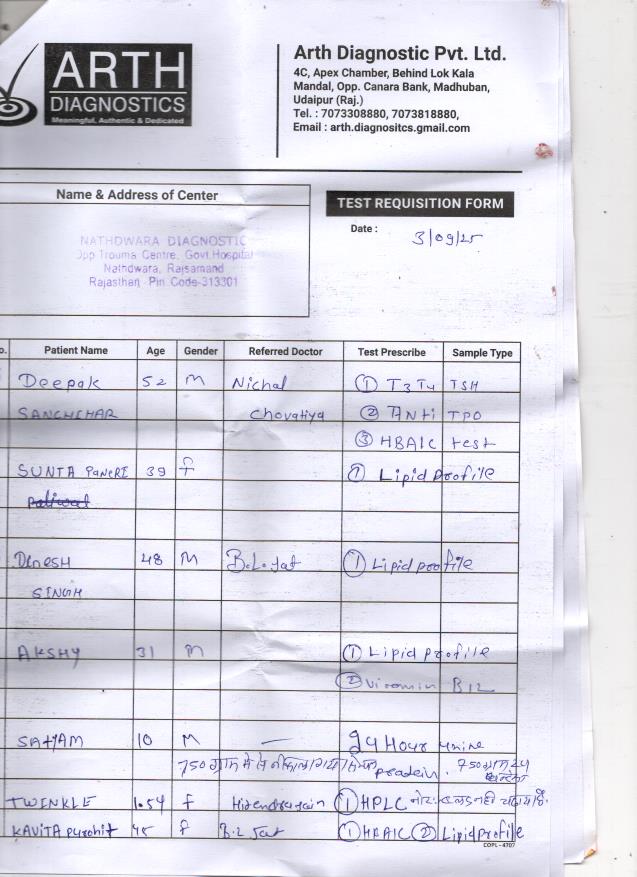 ARTH
DIAGNOSTICS
Meaningful, Authentic & Dedicated
Arth Diagnostic Pvt. Ltd.
4C, Apex Chamber, Behind Lok Kala
Mandal, Opp. Canara Bank, Madhuban,
Udaipur (Raj.)
Tel. : 7073308880, 7073818880,
Email : arth.diagnositcs.gmail.com
Name & Address of Center
NATHDWARA DIAGNOSTIC
Opp Trouma Centre, Govt Hospital
Nathdwara, Rajsamand
Rajasthan Pin Code-313301
TEST REQUISITION FORM
Date : 3/09/25
o. Patient Name Age Gender Referred Doctor Test Prescribe Sample Type
Deepak 52 M Nichal ① T3 T4 TSH
SANCHIHAR Chovatiya ② Anti TPO
③ HBAIC test
SUNTA PANERI 39 f ① Lipid profile
paliwal
Dinesh 48 M B.L. Jat ① Lipid profile
SINGH
AKSHY 31 M ① Lipid profile
② Viramin B12
SATYAM 10 M — 24 Hour urine
750 ग्राम में से protein. 750 ग्राम
TWINKLE 1.54 f Hitendra Jain ① HPLC नोट: ब्लड नही है.
KAVITA Purohit 45 f B.L Jat ① HBAIC ② Lipid profile
COPL-4707